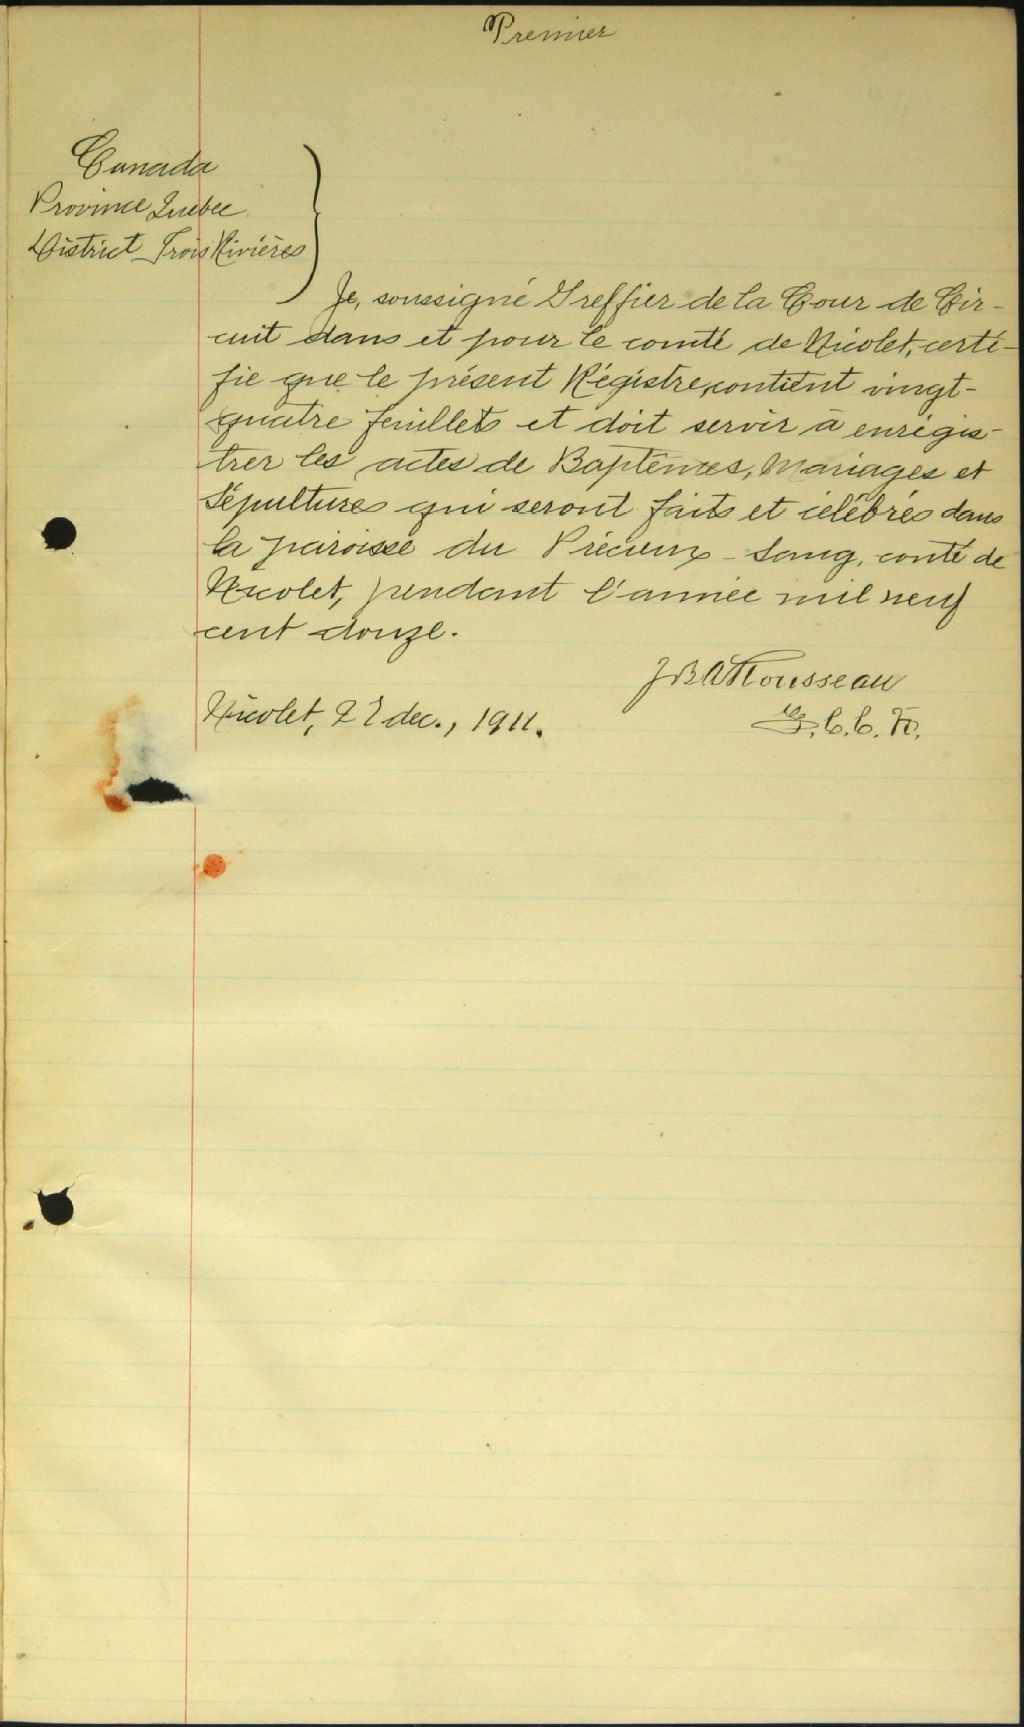 Premier
Canada
Province Quebec
District Trois Rivières
Je, soussigné Greffier de la Cour de Cir-
cuit dans et pour le comté de Nicolet, certi-
fie que le présent Régistre, contient vingt-
quatre feuillets et doit servir à enrégis-
trer les actes de Baptêmes, Mariages et
Sépultures qui seront faits et célébrés dans
la paroisse du Précieux-Sang, comté de
Nicolet, pendant l'année mil neuf
cent douze.
J B A Rousseau
G.C.C.N.
Nicolet, 22 dec., 1911.